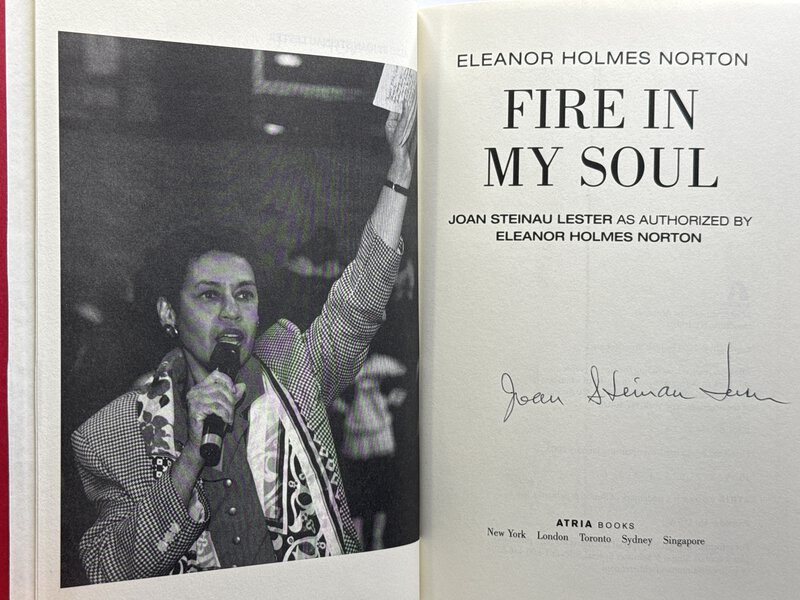 ELEANOR HOLMES NORTON
FIRE IN
MY SOUL
JOAN STEINAU LESTER AS AUTHORIZED BY
ELEANOR HOLMES NORTON
Joan Steinau Lester
ATRIA BOOKS
New York London Toronto Sydney Singapore